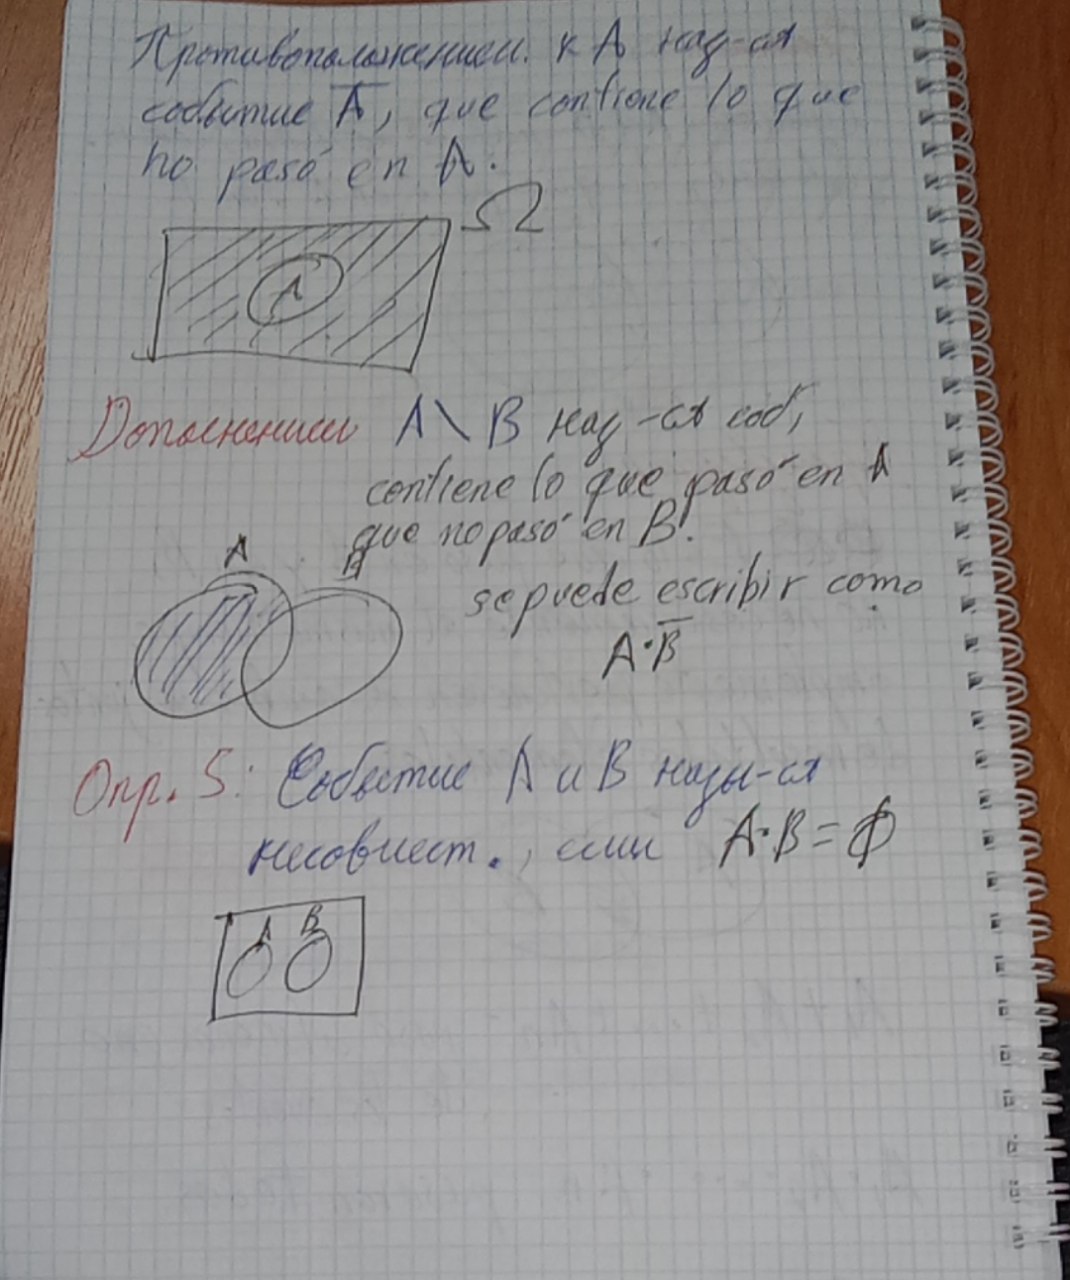 Противоположением к A наз-ся
событие A̅, que contiene lo que
no pasó en A.
Ω
A
Дополнением A \ B наз-ся соб,
contiene lo que pasó en A
que no pasó en B.
A B
se puede escribir como
A·B̅
Опр. 5: Событие A и B назы-ся
несовмест., если A·B=∅
A B